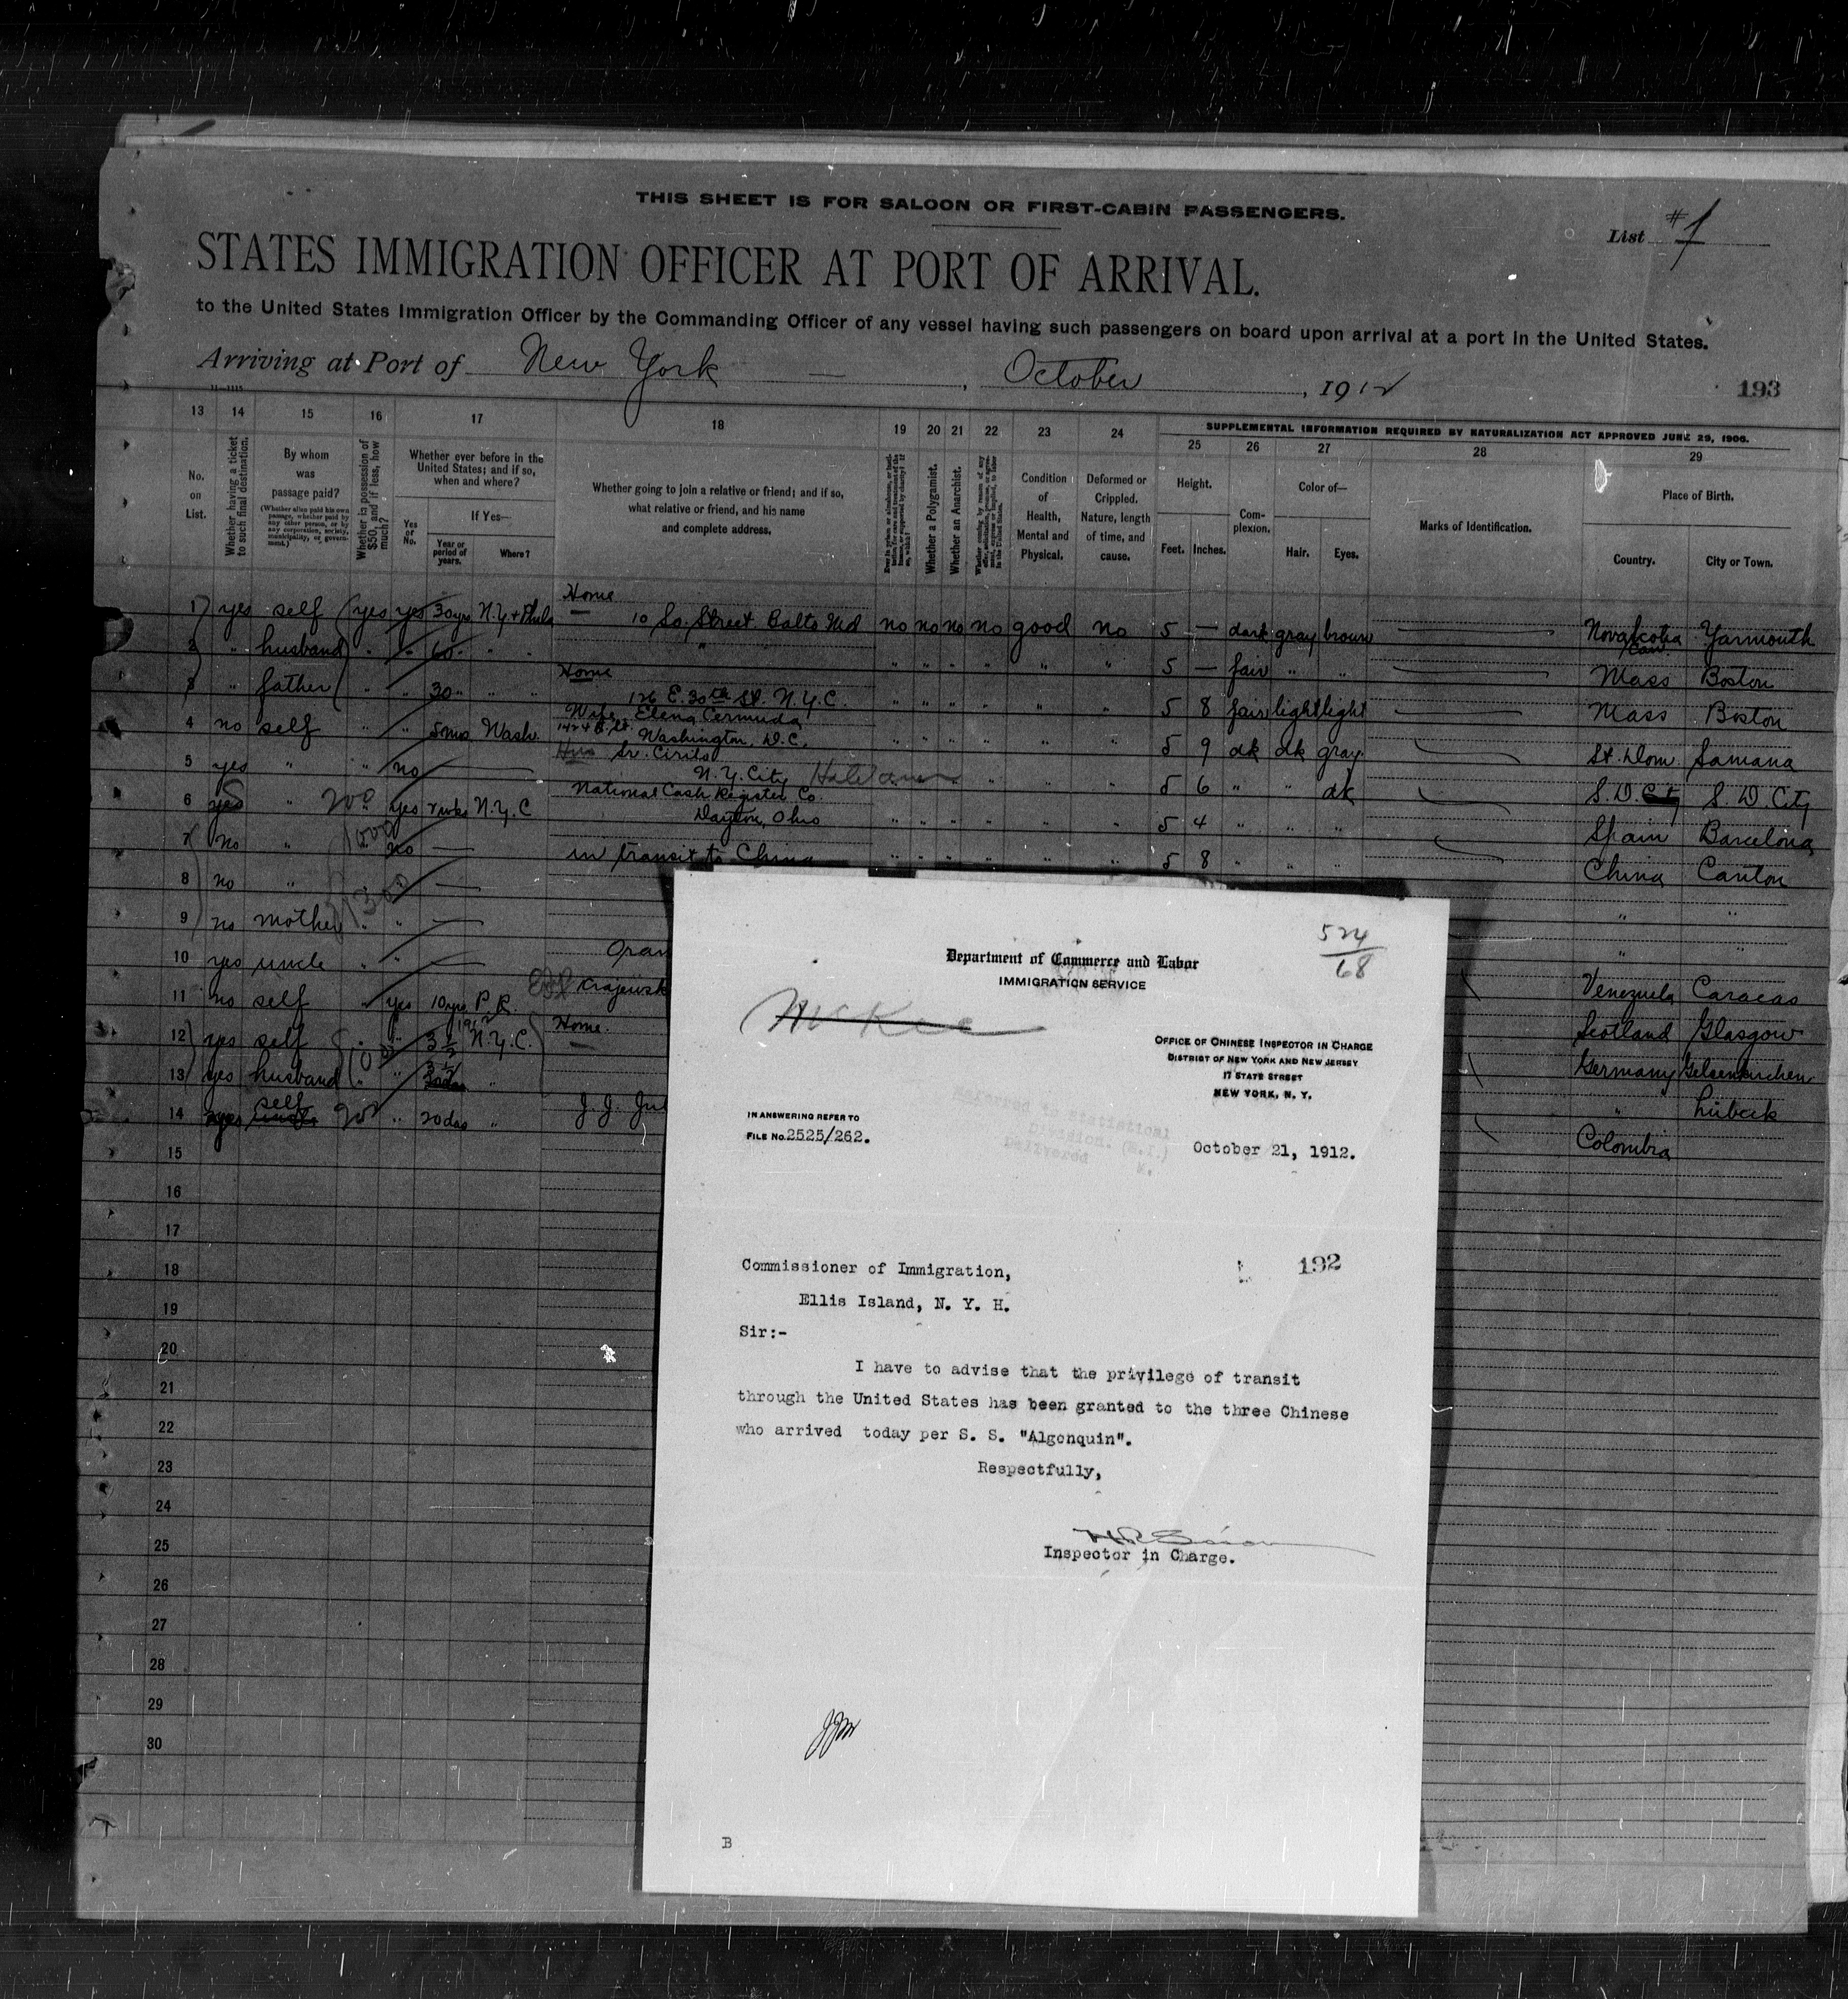 THIS SHEET IS FOR SALOON OR FIRST-CABIN PASSENGERS.
List #1
STATES IMMIGRATION OFFICER AT PORT OF ARRIVAL.
to the United States Immigration Officer by the Commanding Officer of any vessel having such passengers on board upon arrival at a port in the United States.
Arriving at Port of New York — , October , 1912
193
11—1115
13 14 15 16 17 18 19 20 21 22 23 24
SUPPLEMENTAL INFORMATION REQUIRED BY NATURALIZATION ACT APPROVED JUNE 29, 1906.
25 26 27 28 29
No. on List.
Whether having a ticket to such final destination.
By whom was passage paid?
(Whether alien paid his own passage, whether paid by any other person, or by any corporation, society, municipality, or government.)
Whether in possession of $50, and if less, how much?
Whether ever before in the United States; and if so, when and where?
Yes or No.
If Yes—
Year or period of years.
Where?
Whether going to join a relative or friend; and if so, what relative or friend, and his name and complete address.
Whether a Polygamist.
Whether an Anarchist.
Condition of Health, Mental and Physical.
Deformed or Crippled. Nature, length of time, and cause.
Height.
Feet. Inches.
Complexion.
Color of—
Hair. Eyes.
Marks of Identification.
Place of Birth.
Country. City or Town.
Home
1 yes self yes yes 30yrs N.Y + Phila — 10 So. Street. Balto Md no no no no good no 5 — dark gray brown Nova Scotia Can. Yarmouth
2 " husband " " 60 " " " " " " " " " 5 — fair " " Mass Boston
Home
3 " father " " 30 " " 126 E. 30th St. N.Y.C. " " " " " " 5 8 fair light light Mass Boston
Wife, Elena Cermuda
4 no self " " 5mos Wash. 1424 Washington, D.C. " " " " " " 5 9 dk dk gray St. Dom. Samana
Sr. Cirilo
5 yes " " no — N.Y. City " " " " 5 6 " " dk S.D. City S.D. City
National Cash Register Co.
6 yes " 20 yes 2wks N.Y.C Dayton, Ohio " " " " " " 5 4 " " " Spain Barcelona
7 no " no — in transit to China " " " " " " 5 8 " " " China Canton
8 no " " — " "
9 no mother " " — " "
10 yes uncle " " — Venezuela Caracas
11 no self " yes 10yrs P.R. Scotland Glasgow
12 yes self " " 3½ 1912 N.Y.C. Home. — Germany Gelsenkirchen
13 yes husband " " 3½ " " Lübeck
14 yes self " 20das " J.J. Colombia
15
16
17
18
19
20
21
22
23
24
25
26
27
28
29
30
524/68
Department of Commerce and Labor
IMMIGRATION SERVICE
McKee
OFFICE OF CHINESE INSPECTOR IN CHARGE
DISTRICT OF NEW YORK AND NEW JERSEY
17 STATE STREET
NEW YORK, N. Y.
IN ANSWERING REFER TO
FILE No. 2525/262.
Referred to Statistical
Division. (M.I.)
Delivered M.
October 21, 1912.
Commissioner of Immigration,
192
Ellis Island, N. Y. H.
Sir:-
I have to advise that the privilege of transit
through the United States has been granted to the three Chinese
who arrived today per S. S. "Algonquin".
Respectfully,
Inspector in Charge.
JJM
B